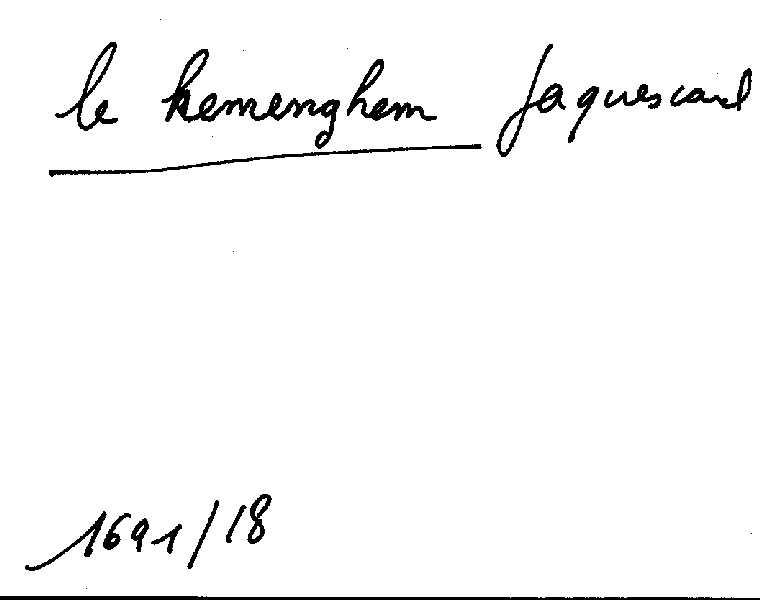 le kemenghem Jaquescard
1691/18